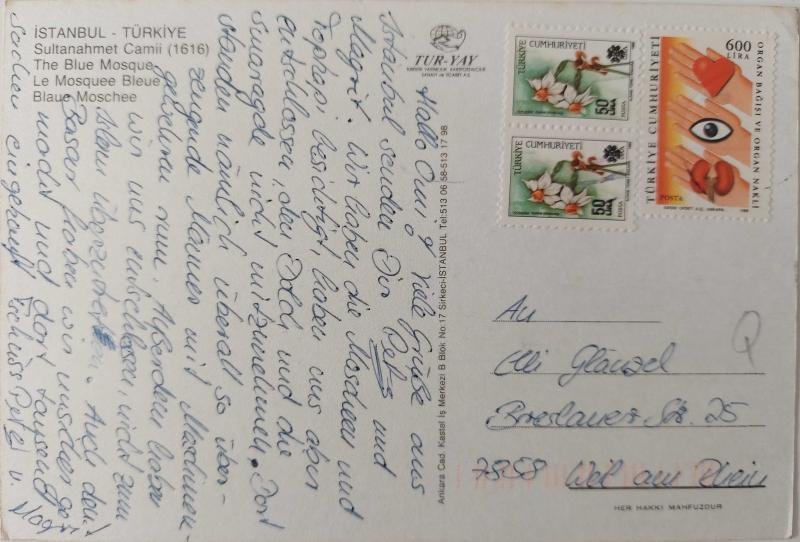 İSTANBUL - TÜRKİYE
Sultanahmet Camii (1616)
The Blue Mosque
Le Mosquee Bleue
Blaue Moschee
TUR-YAY
Hallo Omi, Viele Grüße aus
Istanbul senden Dir Peter und
Magrit. Wir haben die Moscheen und
Topkapi besichtigt, haben uns aber
entschlossen, den Dolch und die
Smaragde nicht mitzunehmen. Dort
standen nämlich überall so über-
zeugende Männer mit Maschinen-
gewehren rum. Außerdem haben
wir uns entschlossen, nicht zum
Islam überzutreten. Auch den
Basar haben wir unsicher ge-
macht und dort tausend
Sachen eingekauft. Tschüss Peter u.
Ankara Cad. Kastel İş Merkezi B Blok No:17 Sirkeci-İSTANBUL Tel:513 06 58-513 17 98
TÜRKİYE CUMHURİYETİ
50 LİRA
POSTA
TÜRKİYE CUMHURİYETİ
50 LİRA
POSTA
600 LİRA
ORGAN BAĞIŞI VE ORGAN NAKLİ
TÜRKİYE CUMHURİYETİ
POSTA
An
Elli Glänzel
Breslauer Str. 25
7858 Weil am Rhein
Q
HER HAKKI MAHFUZDUR